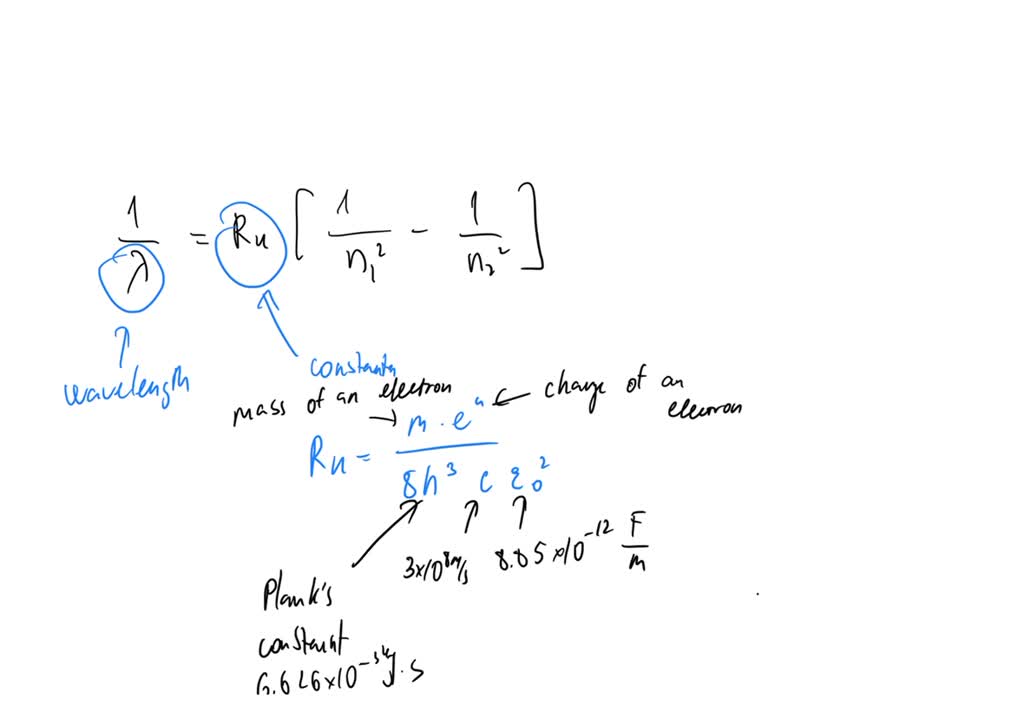 1/λ = RH [ 1/n₁² - 1/n₂² ]
wavelength
constant
mass of an electron → ← charge of an electron
RH = m · e⁴ / 8h³ c ε₀²
3x10⁸ m/s 8.85 x10⁻¹² F/m
Plank's
constant
6.626x10⁻³⁴ J·s